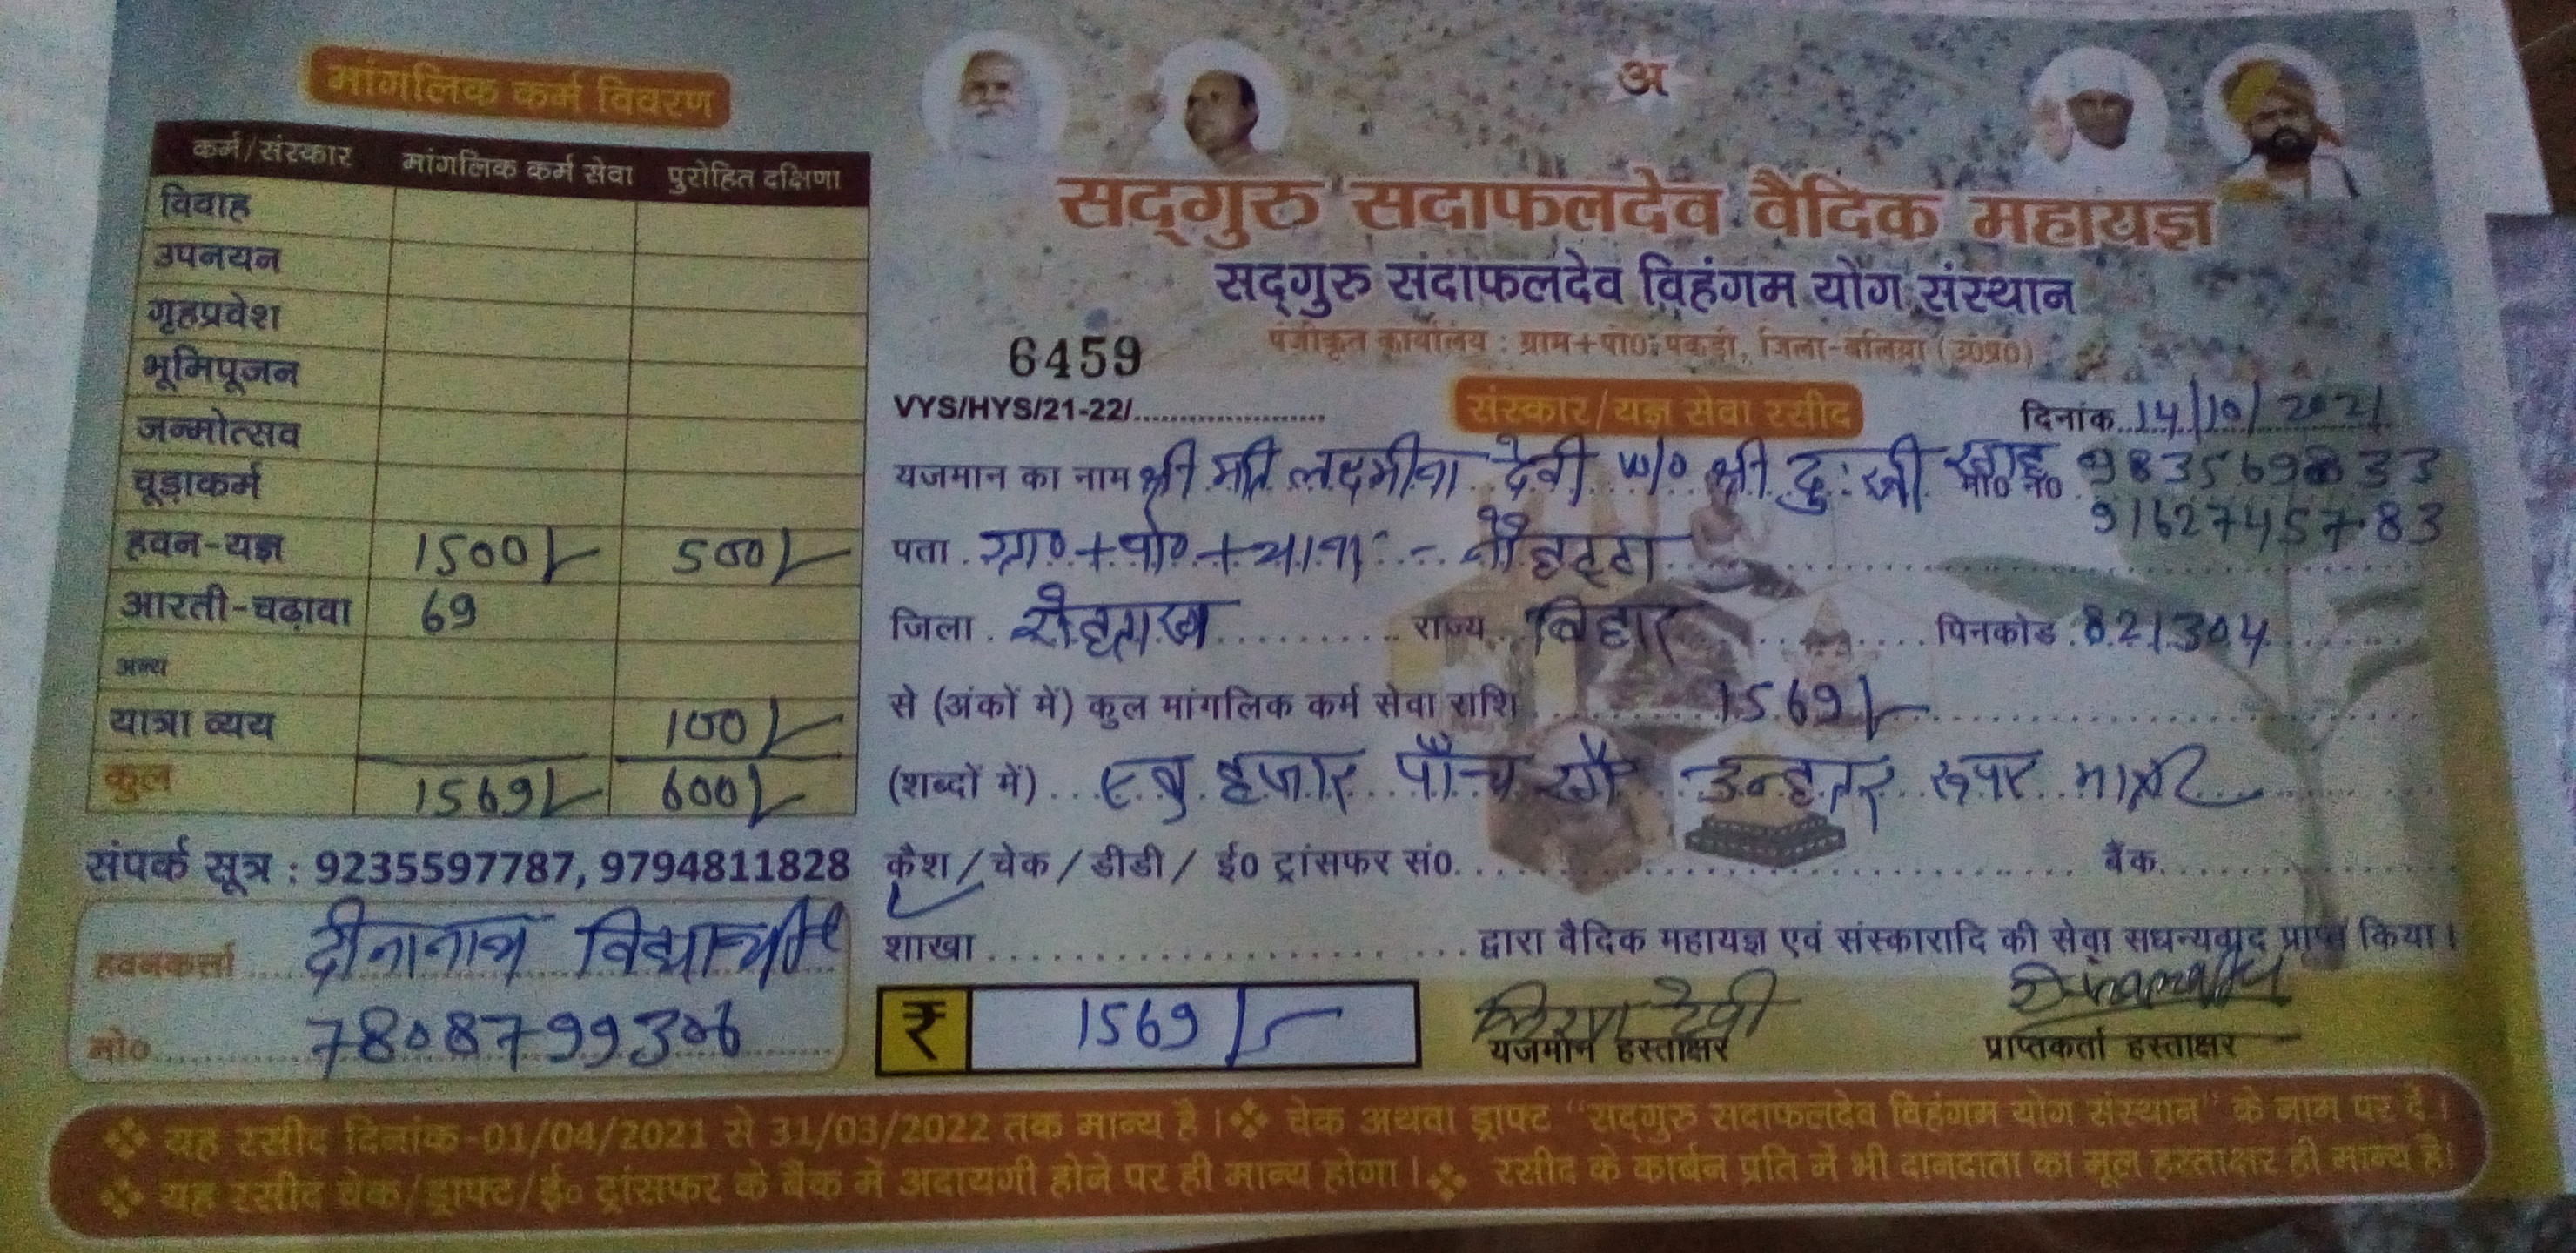 मांगलिक कर्म विवरण
कर्म/संस्कार मांगलिक कर्म सेवा पुरोहित दक्षिणा
विवाह
उपनयन
गृहप्रवेश
भूमिपूजन
जन्मोत्सव
चूड़ाकर्म
हवन-यज्ञ 1500/- 500/-
आरती-चढ़ावा 69
अन्य
यात्रा व्यय 100/-
कुल 1569/- 600/-
संपर्क सूत्र : 9235597787, 9794811828
हवनकर्त्ता दीनानाथ विद्यार्थी
मो० 7808799306
अ
सद्गुरु सदाफलदेव वैदिक महायज्ञ
सद्गुरु सदाफलदेव विहंगम योग संस्थान
पंजीकृत कार्यालय : ग्राम+पो०-पकड़ी, जिला-बलिया (उ०प्र०)
6459
VYS/HYS/21-22/ संस्कार/यज्ञ सेवा रसीद दिनांक 14/10/2021
यजमान का नाम श्री मति देवी w/o श्री दुःखी साह मो० नं०
9162745783
पता ग्रा०+पो०+थाना :- नौहट्टा
जिला रोहतास राज्य बिहार पिनकोड 821304
से (अंकों में) कुल मांगलिक कर्म सेवा राशि 1569/-
(शब्दों में) एक हजार पाँच सौ उन्हतर रूपए मात्र
कैश / चेक / डीडी / ई० ट्रांसफर सं० बैंक
शाखा द्वारा वैदिक महायज्ञ एवं संस्कारादि की सेवा सधन्यवाद प्राप्त किया।
₹ 1569/- देवी Dinanath
यजमान हस्ताक्षर प्राप्तकर्ता हस्ताक्षर
❖ यह रसीद दिनांक-01/04/2021 से 31/03/2022 तक मान्य है। ❖ चेक अथवा ड्राफ्ट "सद्गुरु सदाफलदेव विहंगम योग संस्थान" के नाम पर दें।
❖ यह रसीद चेक/ड्राफ्ट/ई० ट्रांसफर के बैंक में अदायगी होने पर ही मान्य होगा। ❖ रसीद के कार्बन प्रति में भी दानदाता का मूल हस्ताक्षर ही मान्य है।